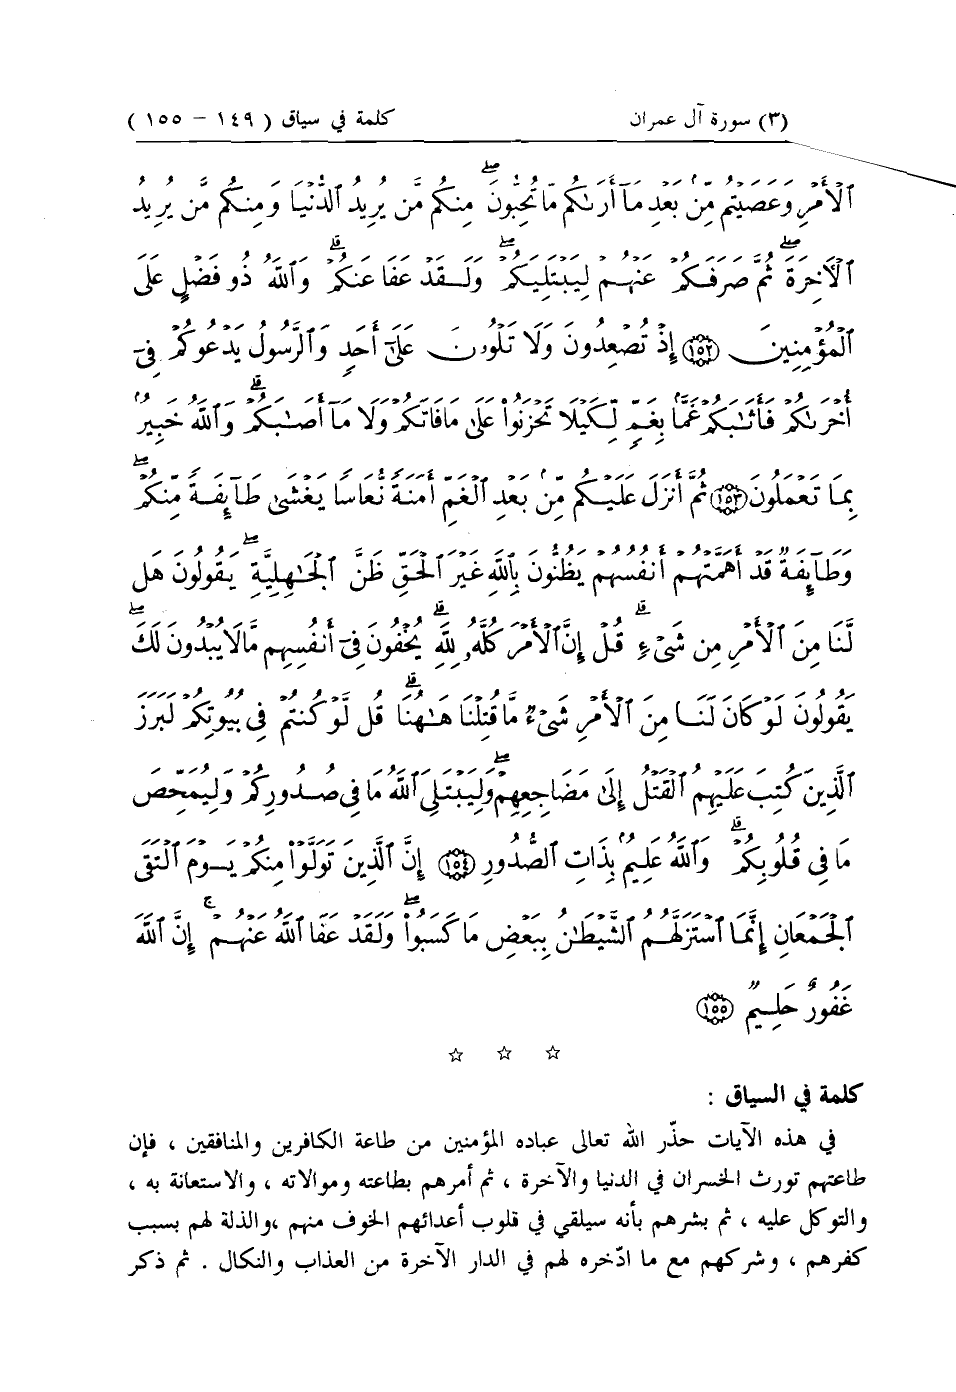 (٣) سورة آل عمران كلمة في سياق ( ١٤٩ – ١٥٥ )
ٱلْأَمْرِ وَعَصَيْتُم مِّنۢ بَعْدِ مَآ أَرَىٰكُم مَّا تُحِبُّونَ ۚ مِنكُم مَّن يُرِيدُ ٱلدُّنْيَا وَمِنكُم مَّن يُرِيدُ
ٱلْأَخِرَةَ ۚ ثُمَّ صَرَفَكُمْ عَنْهُمْ لِيَبْتَلِيَكُمْ ۖ وَلَقَدْ عَفَا عَنكُمْ ۗ وَٱللَّهُ ذُو فَضْلٍ عَلَى
ٱلْمُؤْمِنِينَ ﴿١٥٢﴾ إِذْ تُصْعِدُونَ وَلَا تَلْوُۥنَ عَلَىٰٓ أَحَدٍ وَٱلرَّسُولُ يَدْعُوكُمْ فِىٓ
أُخْرَىٰكُمْ فَأَثَٰبَكُمْ غَمًّۢا بِغَمٍّ لِّكَيْلَا تَحْزَنُوا۟ عَلَىٰ مَا فَاتَكُمْ وَلَا مَآ أَصَٰبَكُمْ ۗ وَٱللَّهُ خَبِيرٌۢ
بِمَا تَعْمَلُونَ ﴿١٥٣﴾ ثُمَّ أَنزَلَ عَلَيْكُم مِّنۢ بَعْدِ ٱلْغَمِّ أَمَنَةً نُّعَاسًا يَغْشَىٰ طَآئِفَةً مِّنكُمْ ۖ
وَطَآئِفَةٌ قَدْ أَهَمَّتْهُمْ أَنفُسُهُمْ يَظُنُّونَ بِٱللَّهِ غَيْرَ ٱلْحَقِّ ظَنَّ ٱلْجَٰهِلِيَّةِ ۖ يَقُولُونَ هَل
لَّنَا مِنَ ٱلْأَمْرِ مِن شَىْءٍ ۗ قُلْ إِنَّ ٱلْأَمْرَ كُلَّهُۥ لِلَّهِ ۗ يُخْفُونَ فِىٓ أَنفُسِهِم مَّا لَا يُبْدُونَ لَكَ ۖ
يَقُولُونَ لَوْ كَانَ لَنَا مِنَ ٱلْأَمْرِ شَىْءٌ مَّا قُتِلْنَا هَٰهُنَا ۗ قُل لَّوْ كُنتُمْ فِى بُيُوتِكُمْ لَبَرَزَ
ٱلَّذِينَ كُتِبَ عَلَيْهِمُ ٱلْقَتْلُ إِلَىٰ مَضَاجِعِهِمْ ۖ وَلِيَبْتَلِىَ ٱللَّهُ مَا فِى صُدُورِكُمْ وَلِيُمَحِّصَ
مَا فِى قُلُوبِكُمْ ۗ وَٱللَّهُ عَلِيمٌۢ بِذَاتِ ٱلصُّدُورِ ﴿١٥٤﴾ إِنَّ ٱلَّذِينَ تَوَلَّوْا۟ مِنكُمْ يَوْمَ ٱلْتَقَى
ٱلْجَمْعَانِ إِنَّمَا ٱسْتَزَلَّهُمُ ٱلشَّيْطَٰنُ بِبَعْضِ مَا كَسَبُوا۟ ۖ وَلَقَدْ عَفَا ٱللَّهُ عَنْهُمْ ۚ إِنَّ ٱللَّهَ
غَفُورٌ حَلِيمٌ ﴿١٥٥﴾
☆ ☆ ☆
كلمة في السياق :
في هذه الآيات حذّر الله تعالى عباده المؤمنين من طاعة الكافرين والمنافقين ، فإن
طاعتهم تورث الخسران في الدنيا والآخرة ، ثم أمرهم بطاعته وموالاته ، والاستعانة به ،
والتوكل عليه ، ثم بشرهم بأنه سيلقي في قلوب أعدائهم الخوف منهم ،والذلة لهم بسبب
كفرهم ، وشركهم مع ما ادّخره لهم في الدار الآخرة من العذاب والنكال . ثم ذكر